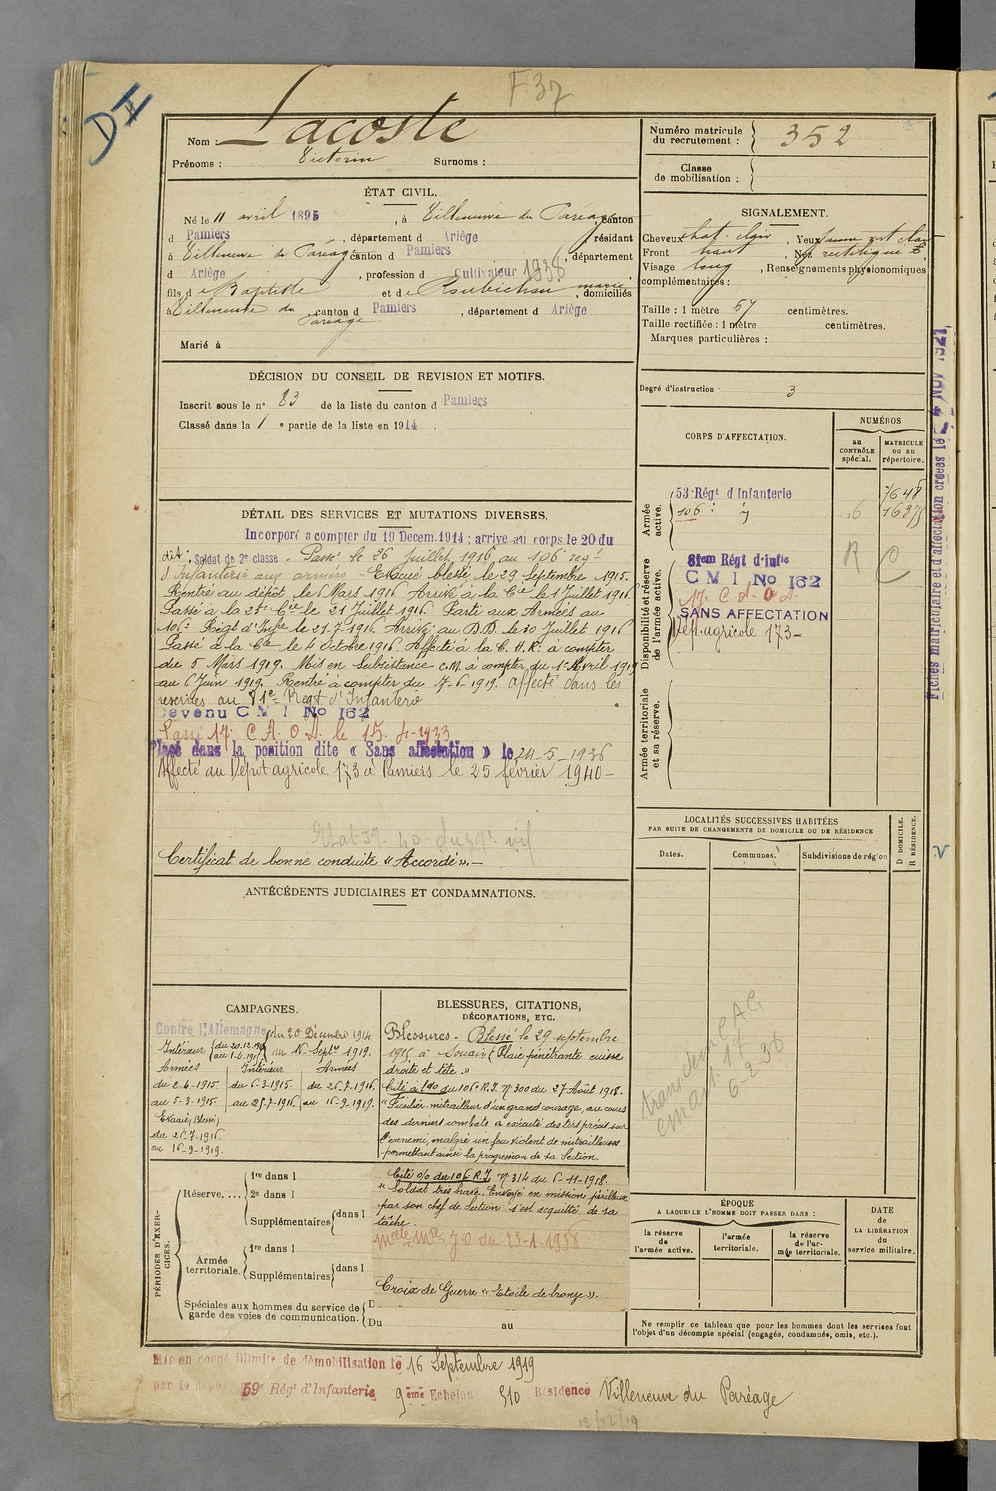 F 37
D I
Nom : Lacoste
Prénoms : Victorin Surnoms :
Numéro matricule du recrutement : 352
Classe de mobilisation :
ÉTAT CIVIL.
Né le 11 avril 1895, à Villeneuve du Paréage, canton
d Pamiers, département d Ariège, résidant
à Villeneuve du Paréage canton d Pamiers, département
d Ariège, profession d Cultivateur 1938
fils de Baptiste et de Roubichou marie, domiciliés
à Villeneuve du Paréage, canton d Pamiers, département d Ariège
Marié à
SIGNALEMENT.
Cheveux chat. clair, Yeux jaune vert
Front haut, Nez rectiligne
Visage long, Renseignements physionomiques
complémentaires :
Taille : 1 mètre 57 centimètres.
Taille rectifiée : 1 mètre centimètres.
Marques particulières :
Degré d'instruction 3
DÉCISION DU CONSEIL DE REVISION ET MOTIFS.
Inscrit sous le n° 83 de la liste du canton d Pamiers
Classé dans la 1 e partie de la liste en 1914.
CORPS D'AFFECTATION.
NUMÉROS
au CONTRÔLE spécial.
MATRICULE ou au répertoire.
Armée active.
53 Régt d'Infanterie 7648
106 : " 1637
Disponibilité et réserve de l'armée active.
81em Régt d'Infie
C M I No 162
17. C A. O A.
SANS AFFECTATION
Dép. agricole 173-
R C
Armée territoriale et sa réserve.
Fiches matriculaire et d'affectation créées le 4 NOV 1921
DÉTAIL DES SERVICES ET MUTATIONS DIVERSES.
Incorporé a compter du 19 Decem.1914 ; arrivé au corps le 20 du
dit, Soldat de 2e classe. Passé le 26 Juillet 1916 au 106e régt
d'Infanterie aux armées. Evacué blessé, le 29 Septembre 1915.
Rentré au dépôt le 6 Mars 1916. Arrivé à la Cie le 1 Juillet 1916.
Passé à la 25e Cie le 21 Juillet 1916. Parti aux Armées au
106e Régt d'Infie le 25-7-1916. Arrivé au D.D. le 30 Juillet 1916
Passé à la Cie le 4 Octobre 1916. Affecté à la C. H. R. à compter
du 5 Mars 1919. Mis en Subsistance C.M. à compter du 1er Avril 1919
au 6 Juin 1919. Rentré à compter du 7-6-1919. affecté dans les
réserves au 81e Régt d'Infanterie
Devenu C M I No 162
Passé 17. C A. O A. le 15. 4-1933
Placé dans la position dite « Sans affectation » le 24-5-1936
Affecté au Dépôt agricole 173 à Pamiers le 25 février 1940-
Certificat de bonne conduite « Accordé ».-
ANTÉCÉDENTS JUDICIAIRES ET CONDAMNATIONS.
LOCALITÉS SUCCESSIVES HABITÉES
PAR SUITE DE CHANGEMENTS DE DOMICILE OU DE RÉSIDENCE
D DOMICILE.
R RÉSIDENCE.
Dates.
Communes.
Subdivisions de région
V
CAMPAGNES.
Contre l'Allemagne du 20 Décembre 1914
au 16 Septre 1919.
Intérieur du 20.12.1914 au 1-4-1915
Armées Intérieur Armées
du 2-4-1915. du 6-3-1915. du 26-7-1916.
au 5-3-1915. au 25-7-1916. au 16-9-1919.
Evacué (Blessé)
du 26-7-1916.
au 16-9-1919.
BLESSURES, CITATIONS,
DÉCORATIONS, ETC.
Blessures - Blessé le 29 septembre
1915 à Souain (Plaie pénétrante cuisse
droite et tête.»
Cité à l'do du 106e R.I. n°300 du 27 Août 1918.
"Fusilier mitrailleur d'un grand courage, au cours
des derniers combats a exécuté des tirs précis sur
l'ennemi, malgré un feu violent de mitrailleuses
permettant ainsi la progression de sa Section.
Cité o/o du 106e R.I. n°314 du 6-11-1918.
"Soldat très brave. Envoyé en mission périlleuse
par son chef de Section s'est acquitté de sa
tâche.
Mle Mre J O du 29-1-1938
Croix de Guerre « Etoile de bronze ».
17
6-2-36
PÉRIODES D'EXERCICES.
Réserve.... 1re dans l
2e dans l
Supplémentaires dans l
Armée territoriale. 1re dans l
Supplémentaires dans l
Spéciales aux hommes du service de garde des voies de communication. D
Du au
ÉPOQUE
A LAQUELLE L'HOMME DOIT PASSER DANS :
la réserve de l'armée active.
l'armée territoriale.
la réserve de l'armée territoriale.
DATE de LA LIBÉRATION du service militaire.
Ne remplir ce tableau que pour les hommes dont les services font l'objet d'un décompte spécial (engagés, condamnés, omis, etc.).
Mis en congé illimité de démobilisation le 16 Septembre 1919
par le dépôt 59e Régt d'Infanterie 9 ème Echelon 510 Résidence Villeneuve du Paréage
12/12/19